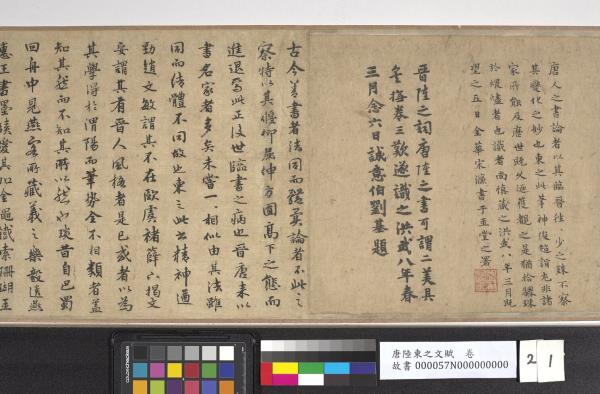 唐人之書論者以其臨晉往〃少之殊不察
其變化之妙也東之此筆神復超詣尤非諸
家所能及歷世既久迺獲觀之是猶拾驪珠
於煨燼者也識者尚慎藏之洪武八年三月既
望之五日金華宋濂書于玉堂之署
晉陸之詞唐陸之書可謂二美具
矣撫卷三歎遂識之洪武八年春
三月念六日誠意伯劉基題
古今善書者法同而體異論者不此之
察特以其俛仰屈伸方圓高下之態而
進退焉此正後世臨書之病也晉唐來以
書名家者多矣未嘗一一相似由其法雖
同而結體不同故也東之此書精神遒
勁趙文敏謂其不在歐虞褚薛下揭文
安謂其有晉人風格者是已或者以為
其學得於渭陽而筆勢全不相類者蓋
知其然而不知其所以然也琰昔自巴蜀
回舟中見燕客所藏羲之樂毅遺燕
惠王書墨蹟金龜識索珊瑚玉
唐陸東之文賦　卷
故書 000057N000000000
2 1